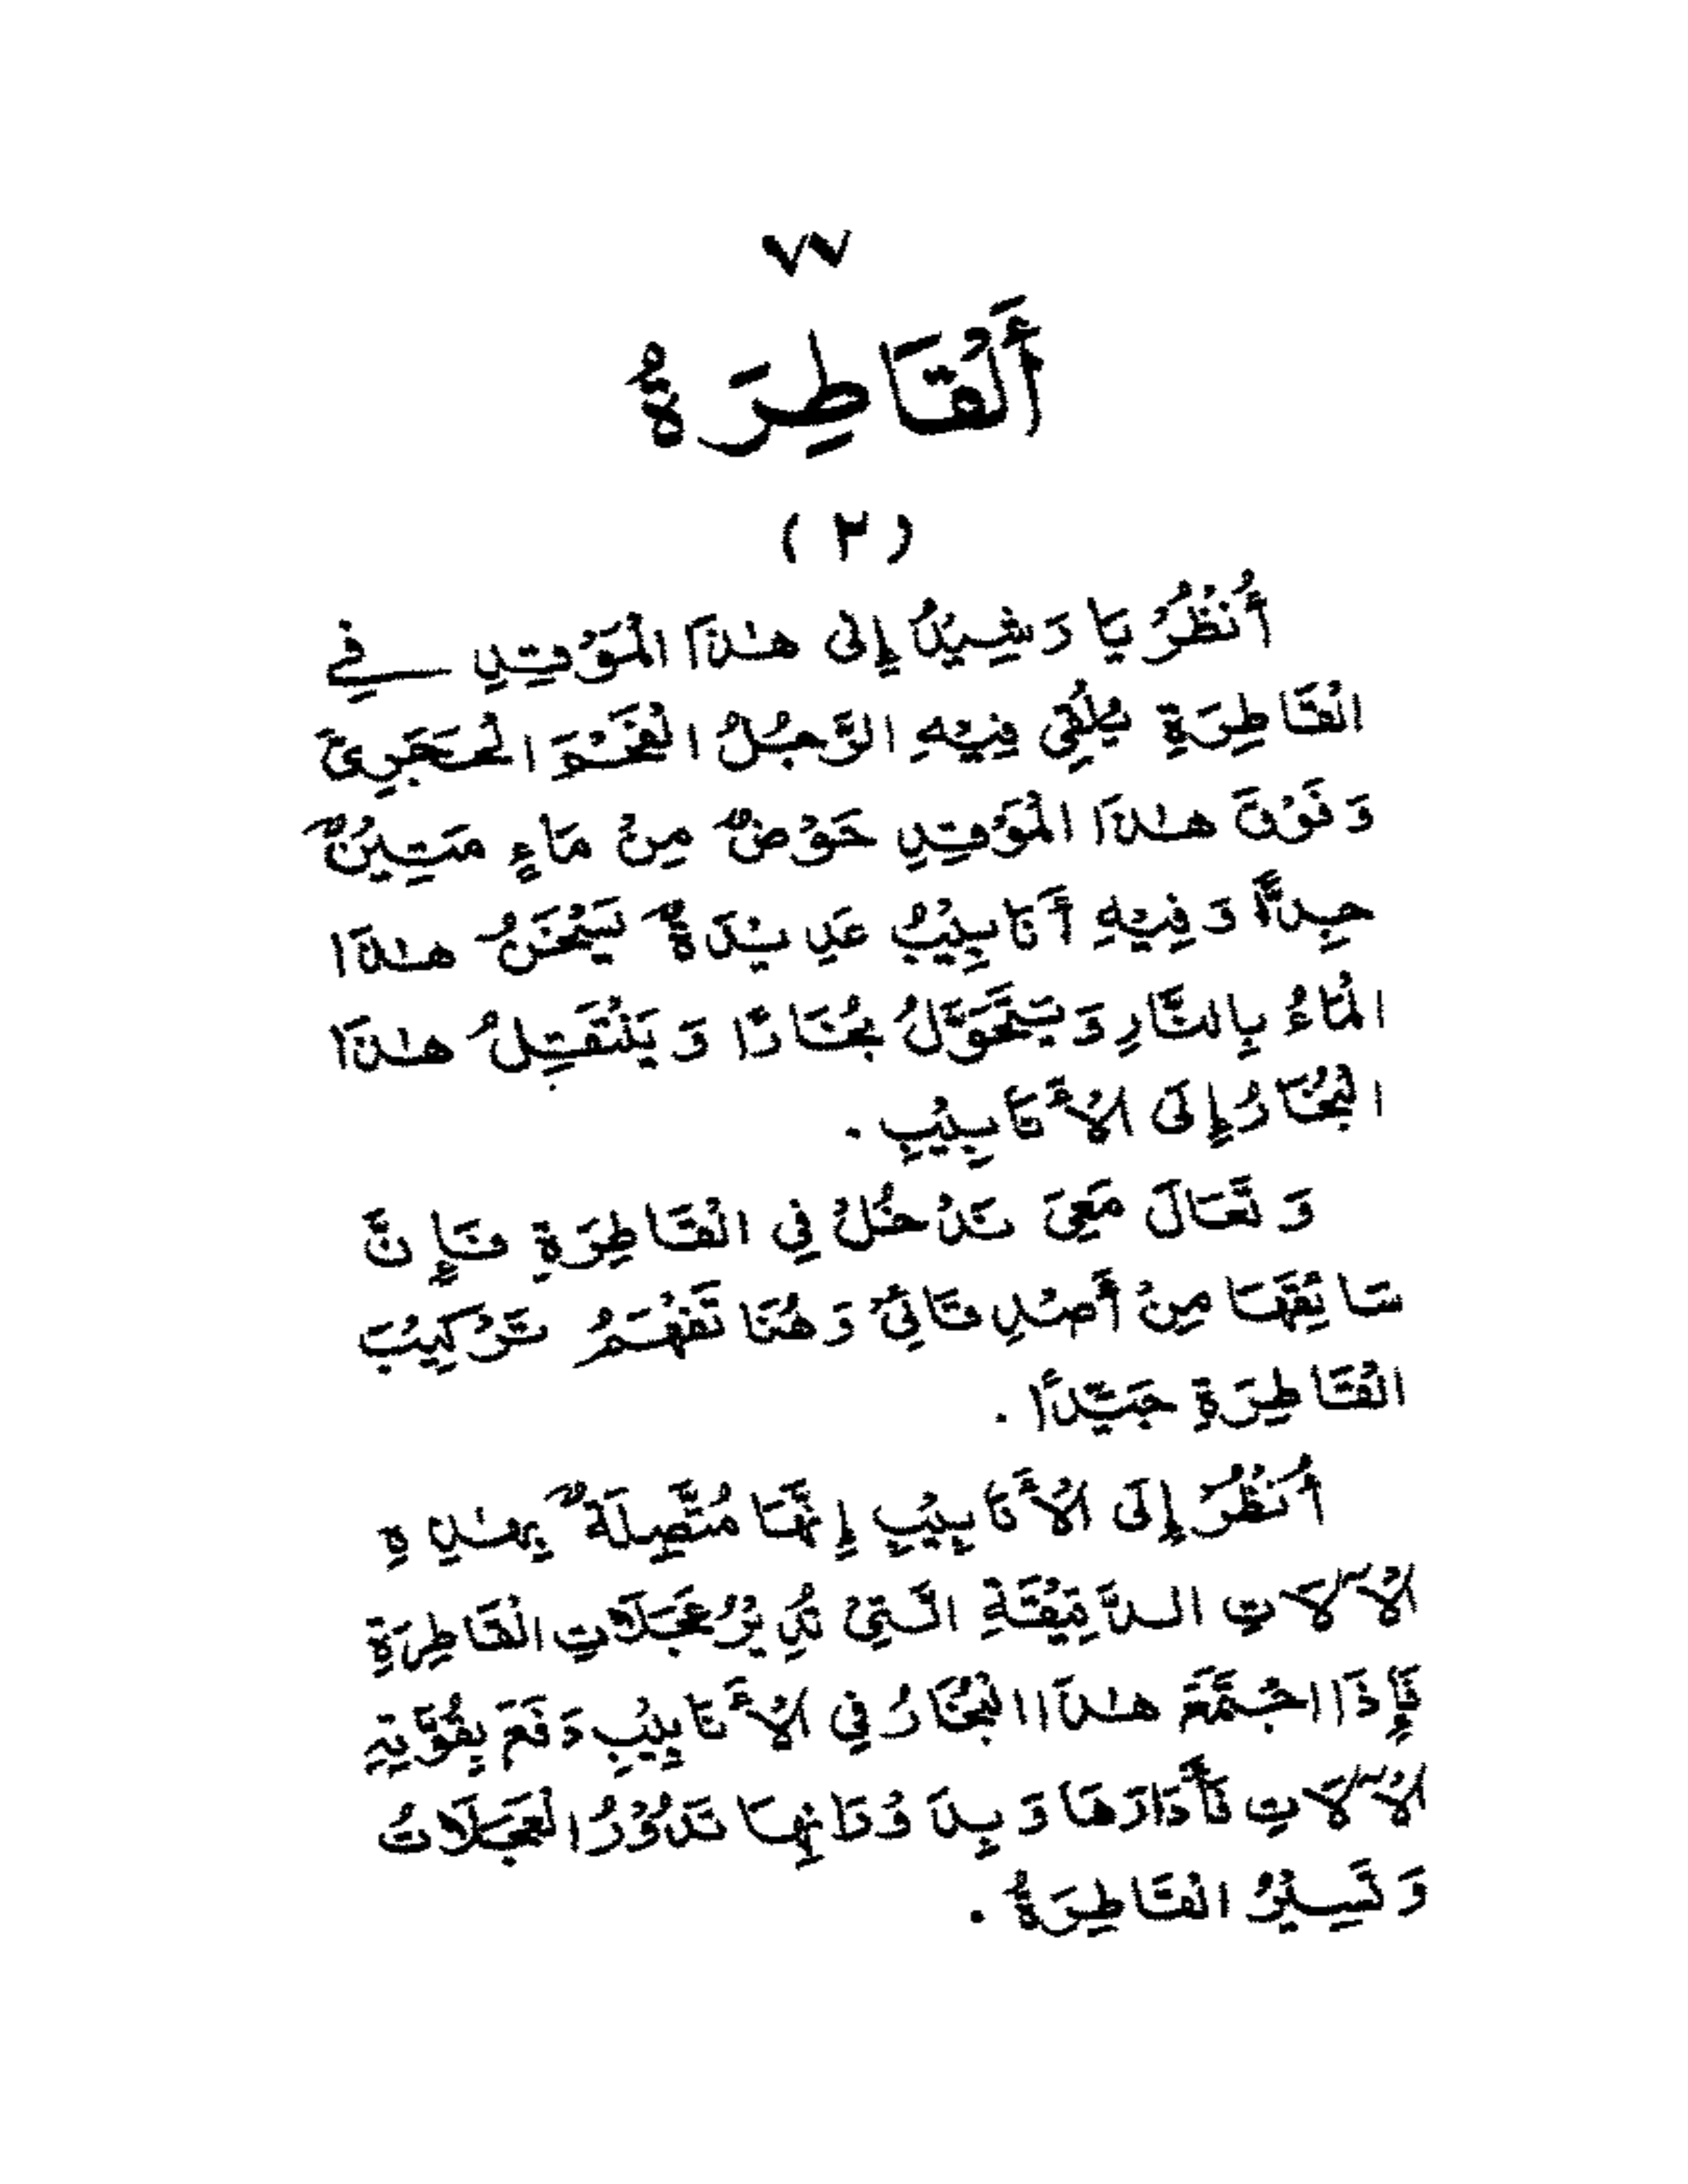 ٧٧
أَلْقَاطِرَةُ
(٢)
أُنْظُرْ يَا رَشِيْدُ إِلىٰ هٰذَا الْمَوْقِدِ فِي
الْقَاطِرَةِ يُلْقِي فِيْهِ الرَّجُلُ الْفَحْمَ الْحَجَرِىَّ
وَفَوْقَ هٰذَا الْمَوْقِدِ حَوْضٌ مِنْ مَاءٍ مَتِيْنٌ
جِدًّا وَفِيْهِ أَنَابِيْبُ عَدِيْدَةٌ يَسْخَنُ هٰذَا
الْمَاءُ بِالنَّارِ وَيَتَحَوَّلُ بُخَارًا وَيَنْتَقِلُ هٰذَا
الْبُخَارُ إِلَى الْأَنَابِيْبِ.
وَتَعَالَ مَعِىَ نَدْخُلْ فِي الْقَاطِرَةِ فَإِنَّ
سَائِقَهَا مِنْ أَصْدِقَائِيْ وَهُنَا تَفْهَمُ تَرْكِيْبَ
الْقَاطِرَةِ جَيِّدًا.
أُنْظُرْ إِلَى الْأَنَابِيْبِ إِنَّهَا مُتَّصِلَةٌ بِهٰذِهِ
الْآلَاتِ الدَّقِيْقَةِ الَّتِيْ تُدِيْرُ عَجَلَاتِ الْقَاطِرَةِ
فَإِذَا اجْتَمَعَ هٰذَا الْبُخَارُ فِي الْأَنَابِيْبِ دَفَعَ بِقُوَّتِهِ
الْآلَاتِ فَأَدَارَهَا وَبِدَوَرَانِهَا تَدُوْرُ الْعَجَلَاتُ
وَتَسِيْرُ الْقَاطِرَةُ.